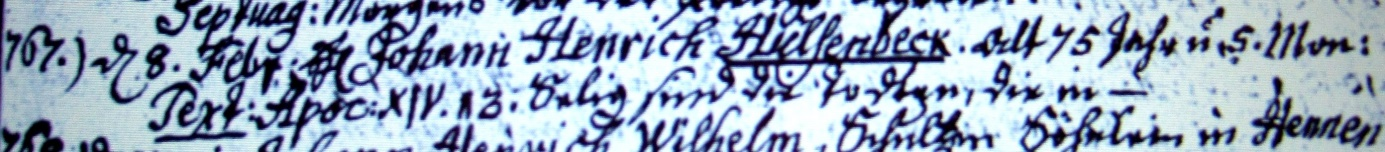 Septuag: Morgens vor der Predigt
767.) d 8. Febr. H Johann Henrich Hülsenbeck. alt 75 Jahr u. 5. Mon:
Text: Apoc: XIV. 13. Selig sind die Todten, die in —
Henrich Wilhelm, Schultzen Söhnlein in Hennen